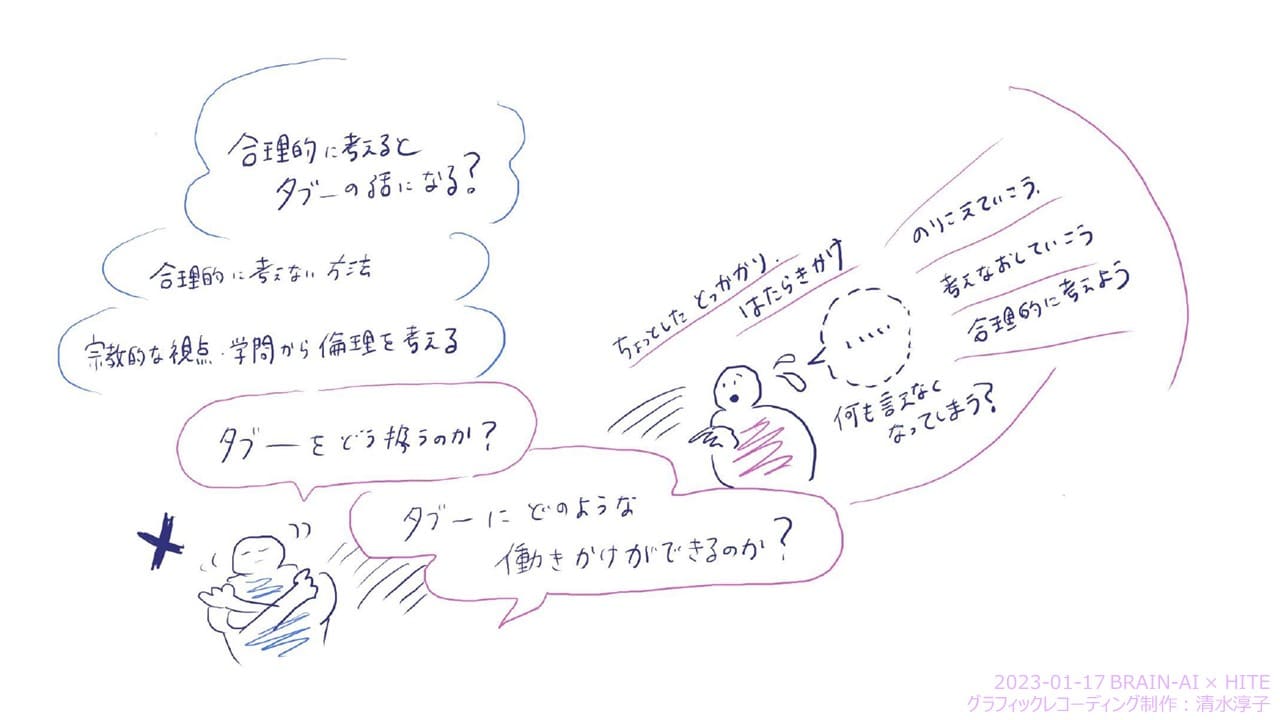 合理的に考えると
タブーの話になる?
合理的に考えない方法
宗教的な視点・学問から倫理を考える
タブーをどう扱うのか?
タブーにどのような
働きかけができるのか?
ちょっとした とっかかり.
はたらきかけ
.....
何も言えなく
なってしまう?
のりこえていこう.
考えなおしていこう
合理的に考えよう
2023-01-17 BRAIN-AI × HITE
グラフィックレコーディング制作：清水淳子